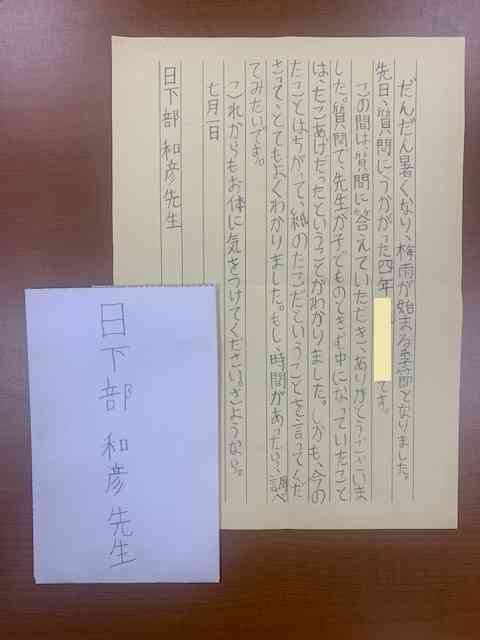 だんだん暑くなり、梅雨が始まる季節となりました。
先日、質問にうかがった四年
です。
この間は、質問に答えていただき、ありがとうございま
した。質問で、先生が子どものときむ中になっていたこと
は、たこあげだったということがわかりました。しかも、今の
たことはちがって、紙のたこだということを言ってくだ
さって、とてもよくわかりました。もし、時間があったら、調べ
てみたいです。
これからもお体に気をつけてください。さようなら。
七月一日
日下部 和彦先生
日下部 和彦先生